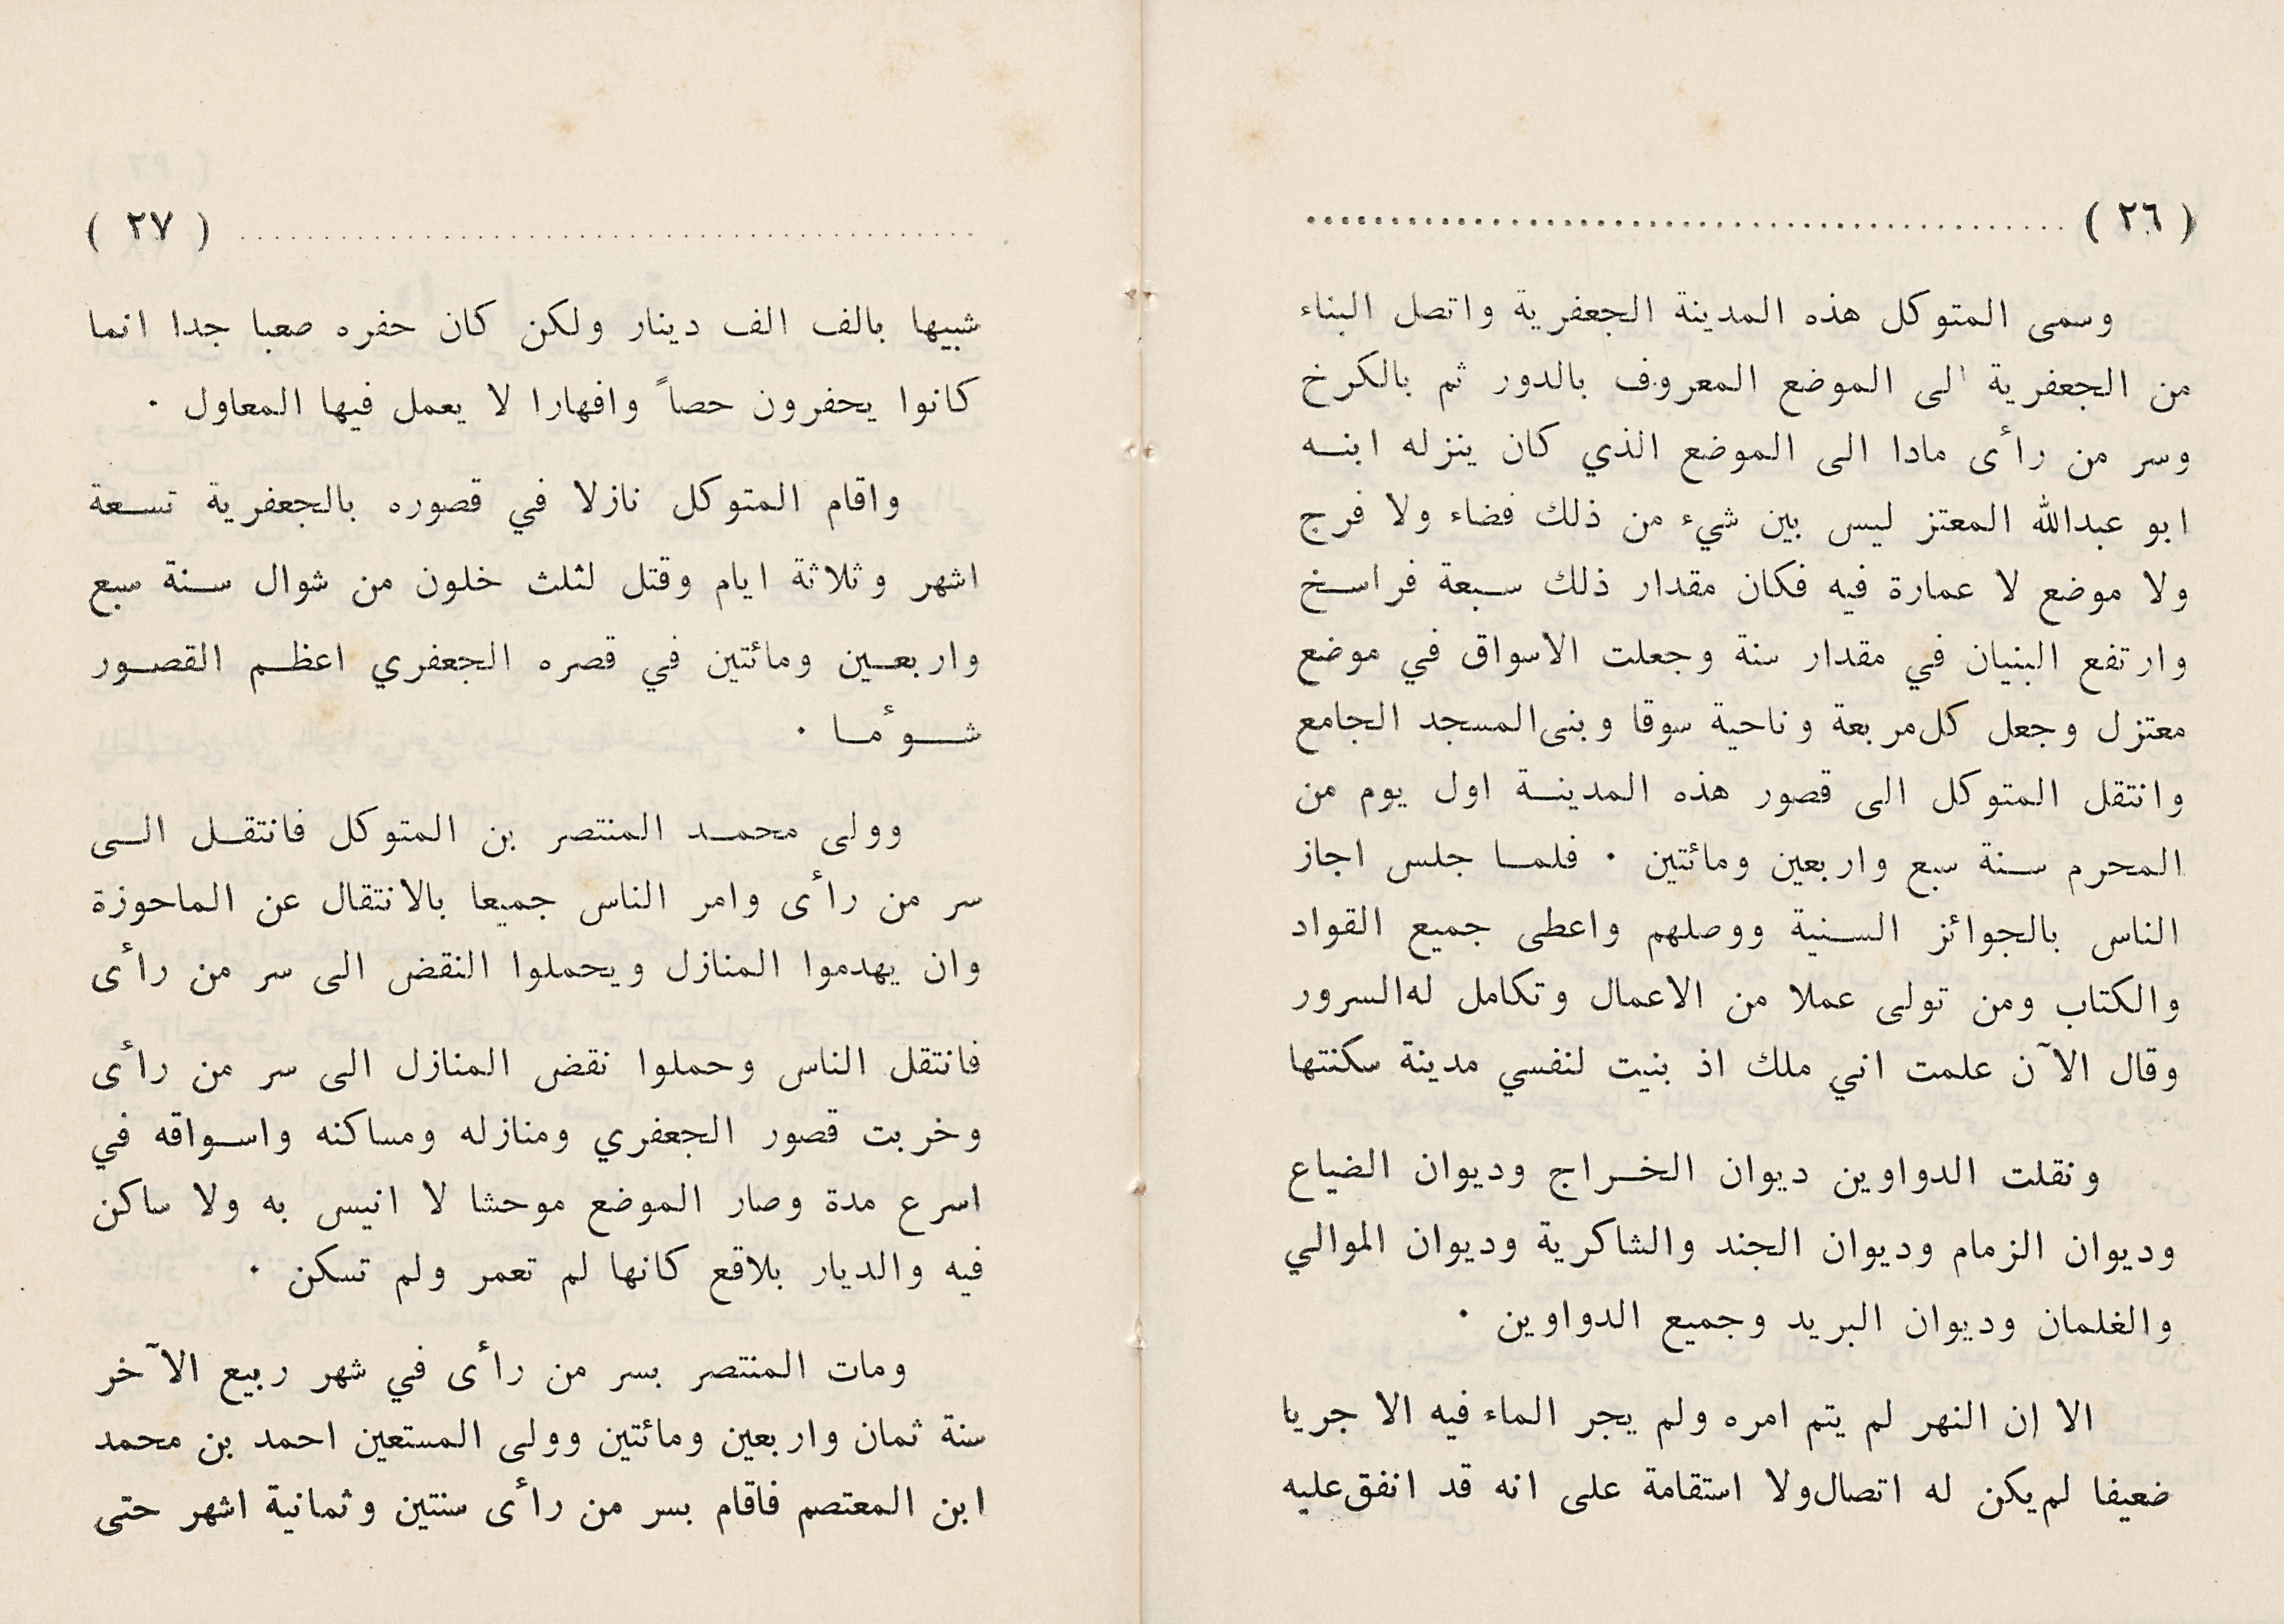 ( ٢٦ )
وسمى المتوكل هذه المدينة الجعفرية واتصل البناء
من الجعفرية الى الموضع المعروف بالدور ثم بالكرخ
وسر من رأى مادا الى الموضع الذي كان ينزله ابنه
ابو عبدالله المعتز ليس بين شيء من ذلك فضاء ولا فرج
ولا موضع لا عمارة فيه فكان مقدار ذلك سبعة فراسخ
وارتفع البنيان في مقدار سنة وجعلت الاسواق في موضع
معتزل وجعل كل مربعة وناحية سوقا وبنى المسجد الجامع
وانتقل المتوكل الى قصور هذه المدينة اول يوم من
المحرم سنة سبع واربعين ومائتين ٠ فلما جلس اجاز
الناس بالجوائز السنية ووصلهم واعطى جميع القواد
والكتاب ومن تولى عملا من الاعمال وتكامل له السرور
وقال الآن علمت اني ملك اذ بنيت لنفسي مدينة سكنتها
ونقلت الدواوين ديوان الخراج وديوان الضياع
وديوان الزمام وديوان الجند والشاكرية وديوان الموالي
والغلمان وديوان البريد وجميع الدواوين ٠
الا ان النهر لم يتم امره ولم يجر الماء فيه الا جريا
ضعيفا لم يكن له اتصال ولا استقامة على انه قد انفق عليه
( ٢٧ )
شبيها بالف الف دينار ولكن كان حفره صعبا جدا انما
كانوا يحفرون حصاً وافهارا لا يعمل فيها المعاول ٠
واقام المتوكل نازلا في قصوره بالجعفرية تسعة
اشهر وثلاثة ايام وقتل لثلث خلون من شوال سنة سبع
واربعين ومائتين في قصره الجعفري اعظم القصور
شوٴما ٠
وولى محمد المنتصر بن المتوكل فانتقل الى
سر من رأى وامر الناس جميعا بالانتقال عن الماحوزة
وان يهدموا المنازل ويحملوا النقض الى سر من رأى
فانتقل الناس وحملوا نقض المنازل الى سر من رأى
وخربت قصور الجعفري ومنازله ومساكنه واسواقه في
اسرع مدة وصار الموضع موحشا لا انيس به ولا ساكن
فيه والديار بلاقع كانها لم تعمر ولم تسكن ٠
ومات المنتصر بسر من رأى في شهر ربيع الآخر
سنة ثمان واربعين ومائتين وولى المستعين احمد بن محمد
ابن المعتصم فاقام بسر من رأى سنتين وثمانية اشهر حتى